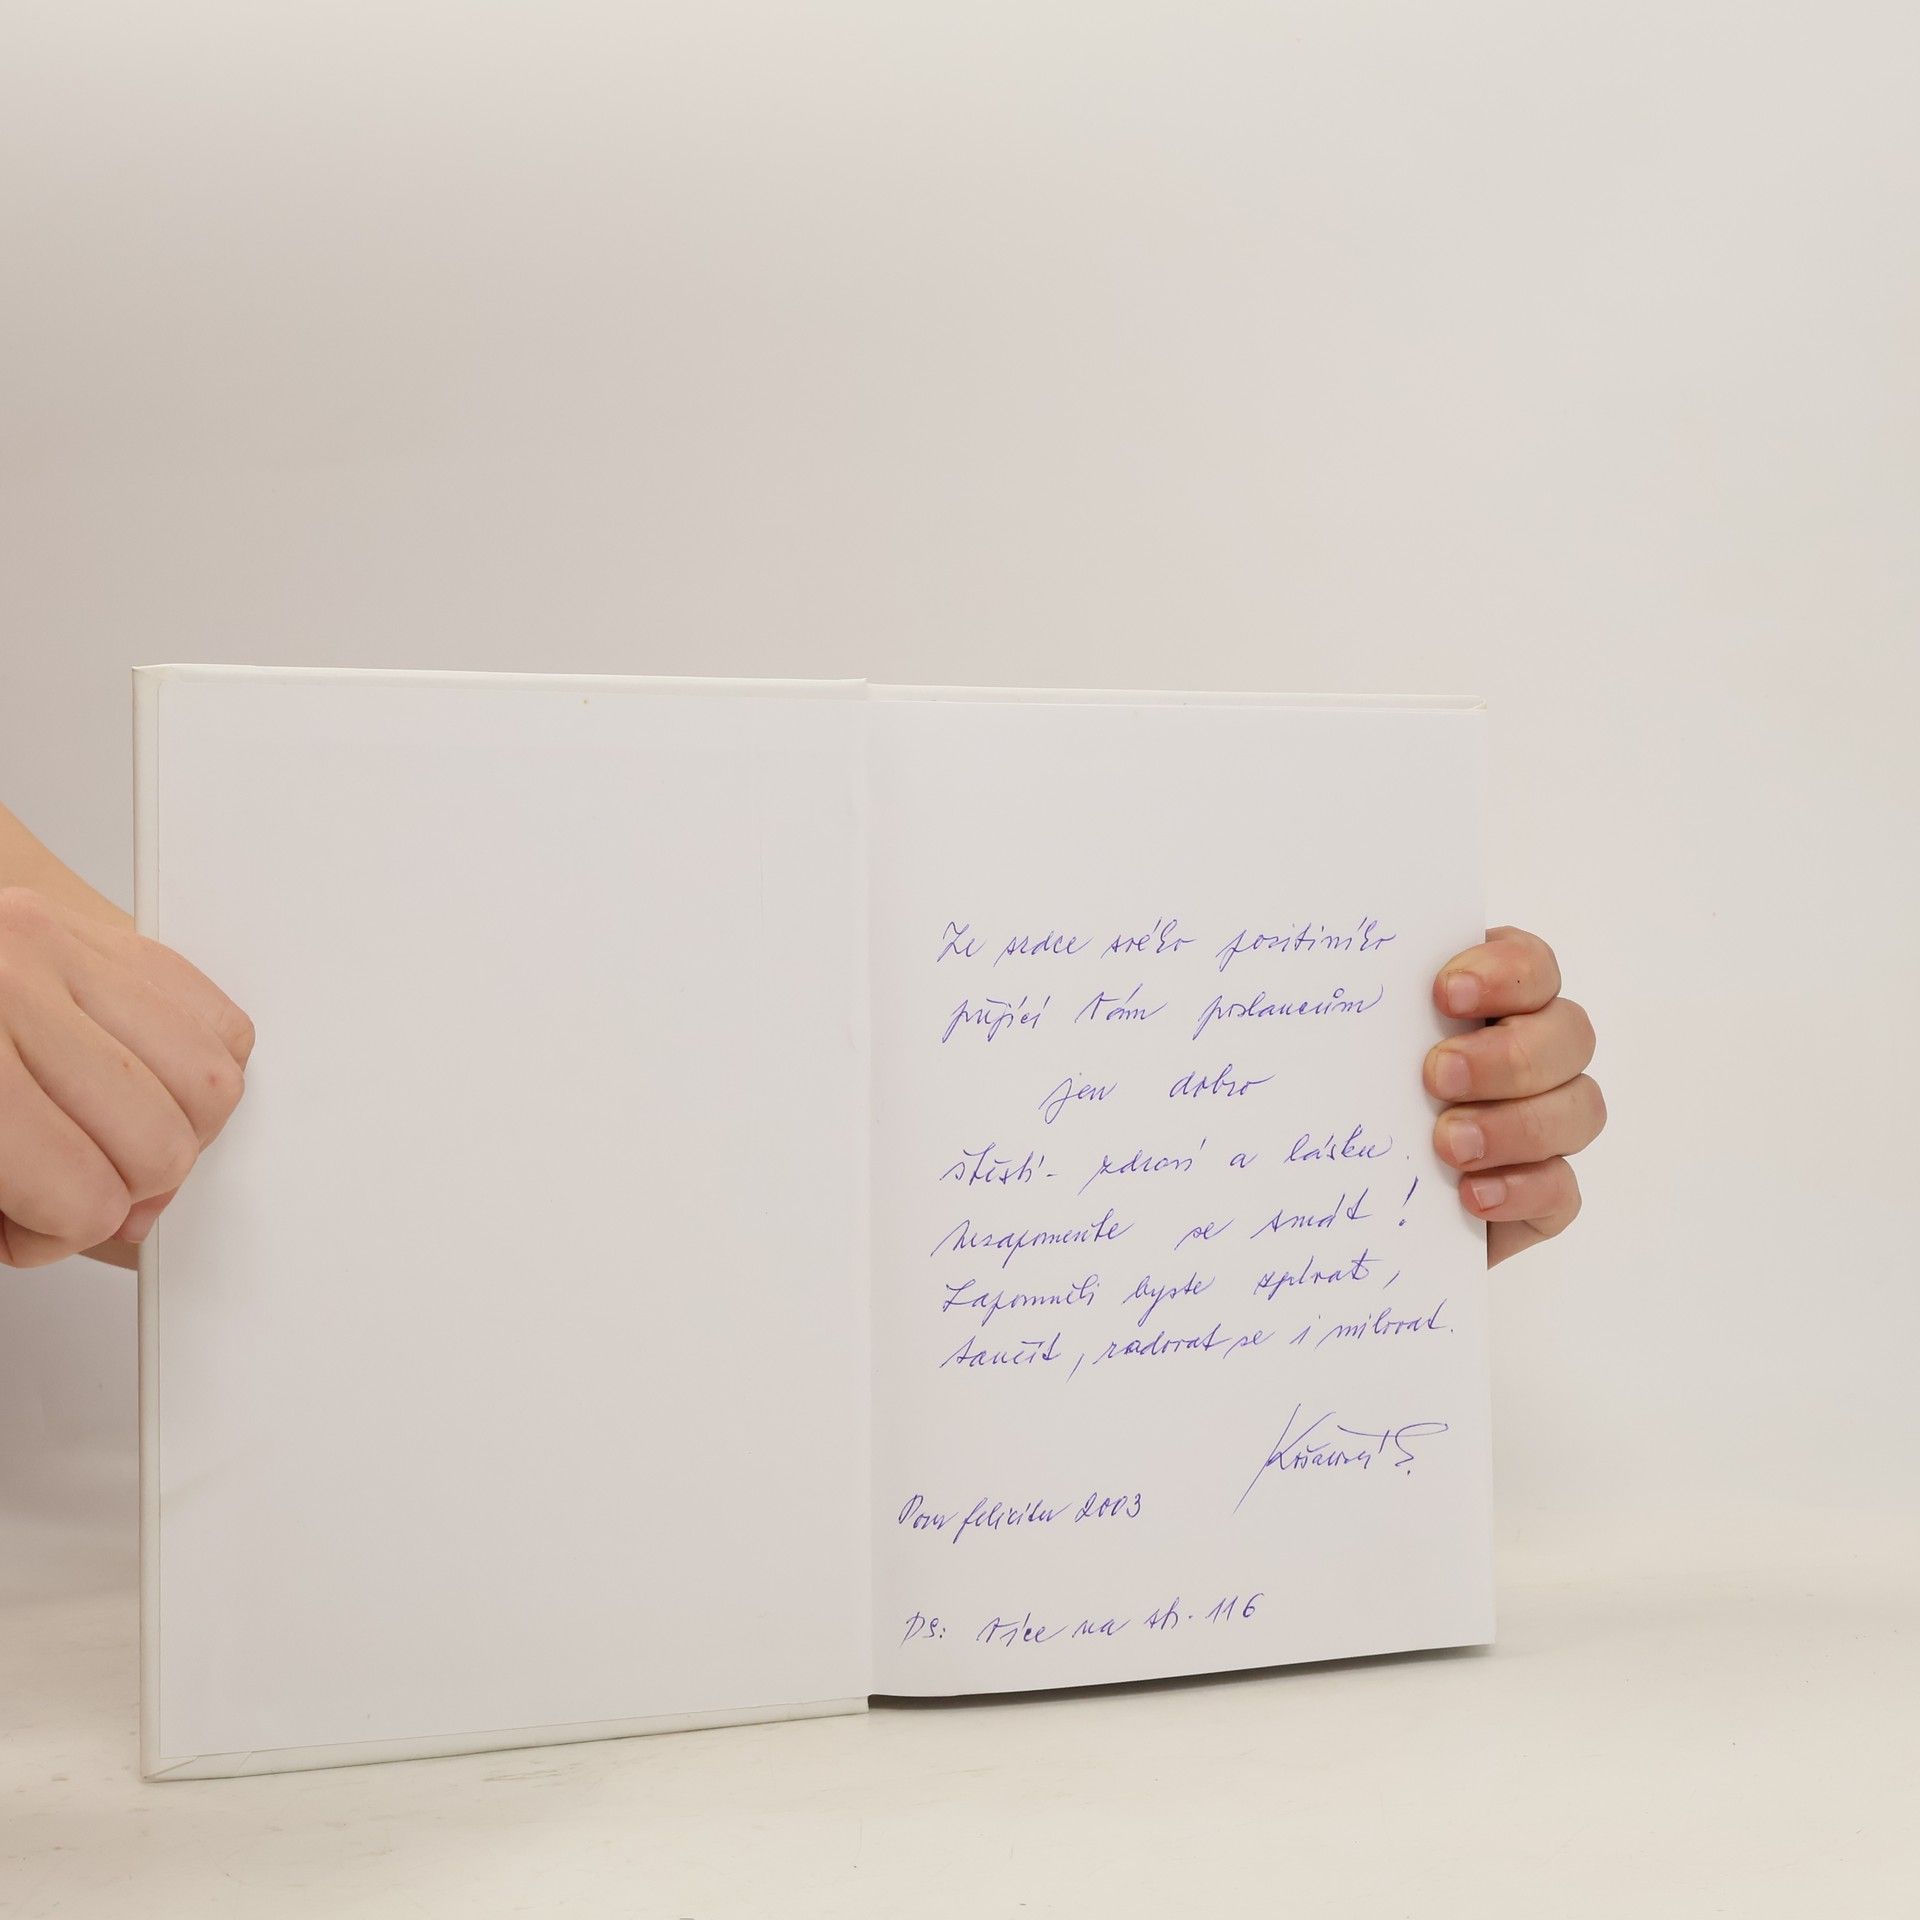 Ze srdce svého positivního
přející Vám poslancům
jen dobro
štěstí - zdraví a lásku.
Nezapomeňte se smát!
Zapomněli byste zpívat,
tančit, radovat se i milovat.
felicitu 2003
PS: Více na str. 116